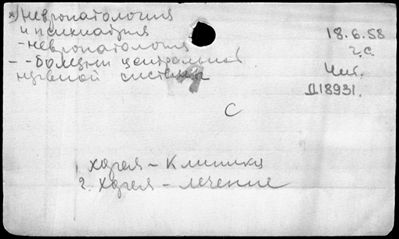 *) Невропатология
и психиатрия
- невропатология
- - Болезни центральной
нервной системы
18.6.58
г.с.
Чит.
Д18931.
С
1. хорея - Клиника
2. Хорея - лечение